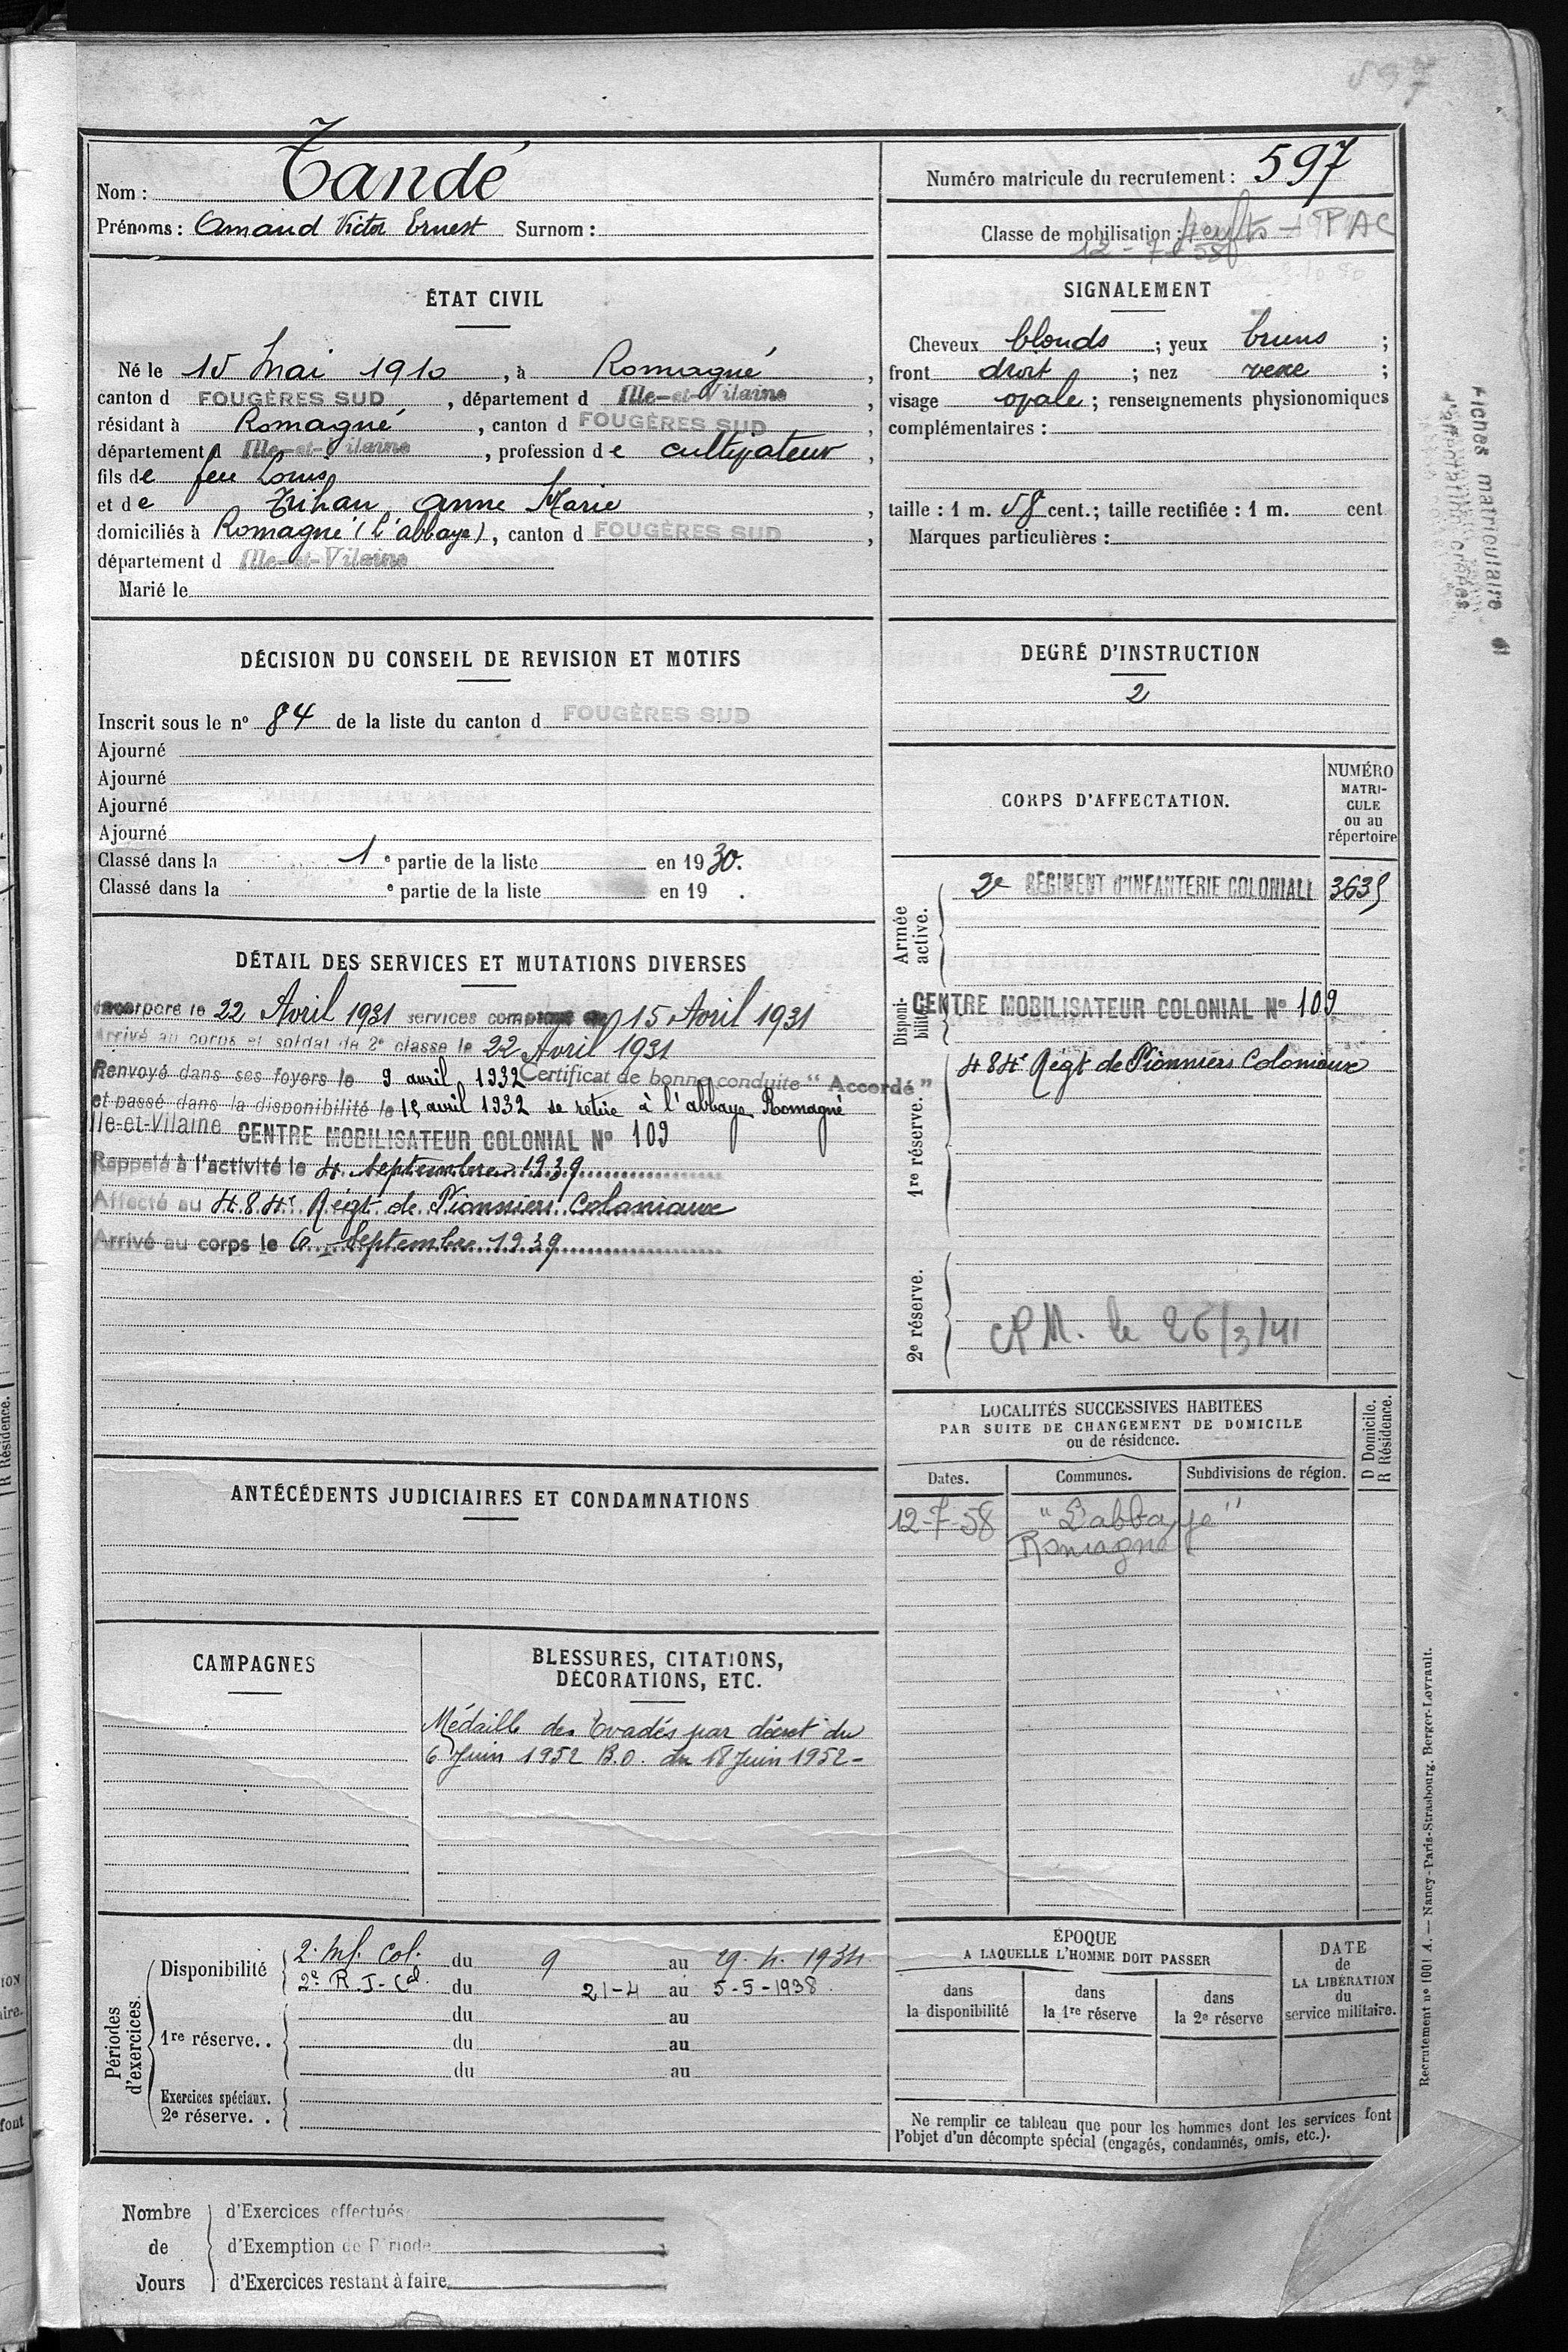 597
Nom : Tandé
Prénoms : Amand Victor Ernest Surnom :
Numéro matricule du recrutement : 597
Classe de mobilisation : PAC
12-7-58
ÉTAT CIVIL
Né le 15 Mai 1910, à Romagné,
canton d FOUGÈRES SUD, département d Ille-et-Vilaine,
résidant à Romagné, canton d FOUGÈRES SUD,
département d Ille-et-Vilaine, profession de cultivateur,
fils de feu Louis
et de Trihan Anne Marie,
domiciliés à Romagné (l'abbaye), canton d FOUGÈRES SUD,
département d Ille-et-Vilaine
Marié le
SIGNALEMENT
Cheveux blonds ; yeux bruns ;
front droit ; nez vexe ;
visage ovale ; renseignements physionomiques
complémentaires :
taille : 1 m. 58 cent. ; taille rectifiée : 1 m. cent
Marques particulières :
Fiches matriculaire
DÉCISION DU CONSEIL DE REVISION ET MOTIFS
Inscrit sous le nº 84 de la liste du canton d FOUGÈRES SUD
Ajourné
Ajourné
Ajourné
Ajourné
Classé dans la 1e partie de la liste en 1930.
Classé dans la e partie de la liste en 19 .
DEGRÉ D'INSTRUCTION
2
CORPS D'AFFECTATION.
NUMÉRO
MATRI-
CULE
ou au
répertoire
Armée active.
2e RÉGIMENT D'INFANTERIE COLONIALE 3635
Disponi-
bilité
CENTRE MOBILISATEUR COLONIAL Nº 109
1re réserve.
484e Régt de Pionniers Coloniaux
2e réserve.
CPM. le 26/3/41
DÉTAIL DES SERVICES ET MUTATIONS DIVERSES
Incorporé le 22 Avril 1931 services comptant du 15 Avril 1931
Arrivé au corps et soldat de 2e classe le 22 Avril 1931
Renvoyé dans ses foyers le 9 avril 1932 Certificat de bonne conduite "Accordé"
et passé dans la disponibilité le 15 avril 1932 se retire à l'abbaye Romagné
Ille-et-Vilaine CENTRE MOBILISATEUR COLONIAL Nº 109
Rappelé à l'activité le 4 Septembre 1939
Affecté au 484e Régt de Pionniers Coloniaux
Arrivé au corps le 6 Septembre 1939
LOCALITÉS SUCCESSIVES HABITÉES
PAR SUITE DE CHANGEMENT DE DOMICILE
ou de résidence.
D Domicile.
R Résidence.
Dates. Communes. Subdivisions de région.
12-7-58 "L'abbaye"
Romagné
ANTÉCÉDENTS JUDICIAIRES ET CONDAMNATIONS
CAMPAGNES
BLESSURES, CITATIONS,
DÉCORATIONS, ETC.
Médaille des Evadés par décret du
6 Juin 1952 B.O. du 18 Juin 1952-
Périodes d'exercices.
Disponibilité 2e Inf. Col. du 9 au 29.4.1934
2e R.I-Cal. du 21-4 au 5-5-1938.
1re réserve.. du au
du au
du au
Exercices spéciaux.
2e réserve. .
ÉPOQUE
A LAQUELLE L'HOMME DOIT PASSER
dans
la disponibilité
dans
la 1re réserve
dans
la 2e réserve
DATE
de
LA LIBÉRATION
du
service militaire.
Ne remplir ce tableau que pour les hommes dont les services font
l'objet d'un décompte spécial (engagés, condamnés, omis, etc.).
Nombre
de
Jours
d'Exercices effectués
d'Exemption de Période
d'Exercices restant à faire
Recrutement nº 1001 A. — Nancy-Paris-Strasbourg, Berger-Levrault.
R Résidence.